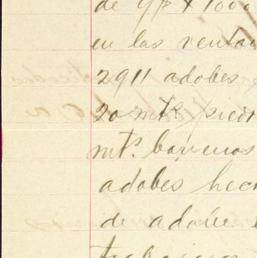 de 9½ x 1000
en las ventan
2911 adobes
20 mts piedr
mts. barrenos
adobes hec
de adobe
trabajos